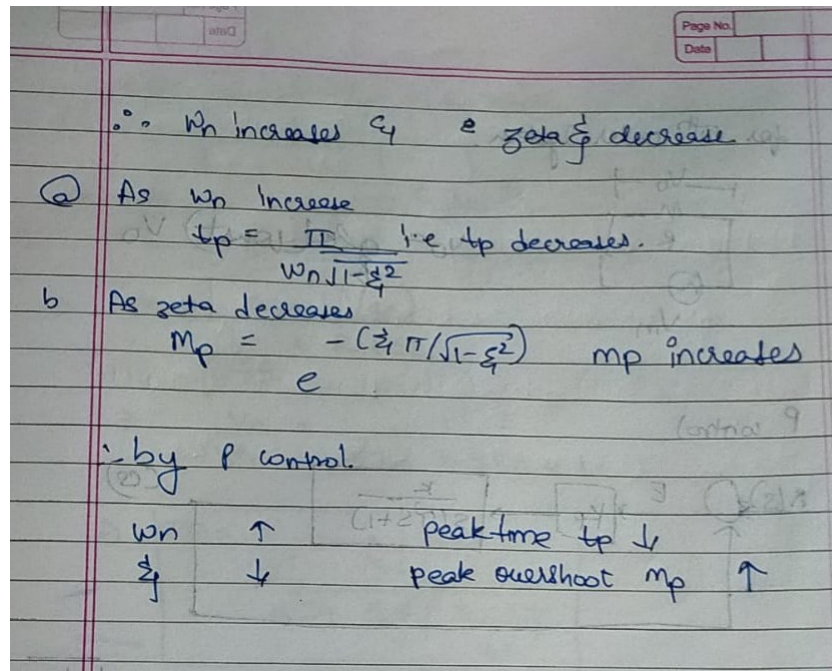 Page No.
Date
∴ Wn increases & e zeta ξ decrease
ⓐ As Wn increase
tp = π / Wn√1-ξ² i.e tp decreases.
b As zeta decreases
Mp = e -(ξπ/√1-ξ²) mp increases
∴ by P control.
wn ↑ peak time tp ↓
ξ ↓ peak overshoot mp ↑